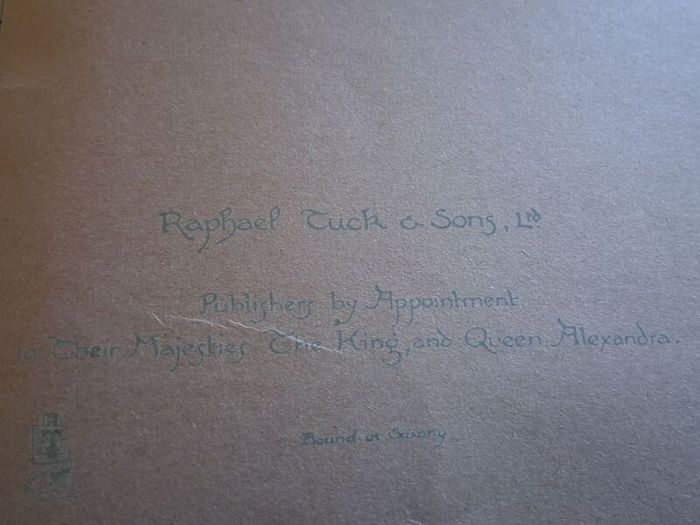 Raphael Tuck & Sons, Ltd
Publishers by Appointment
to Their Majesties The King, and Queen Alexandra.
Bound in Saxony
T